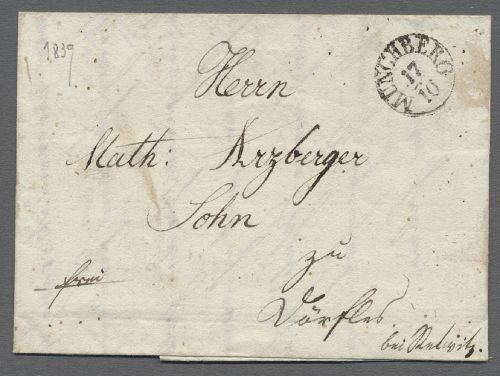 1839
MÜNCHBERG
17
10
Herrn
Math: Arzberger
Sohn
zu
frei
Dörfles
bei Redwitz.